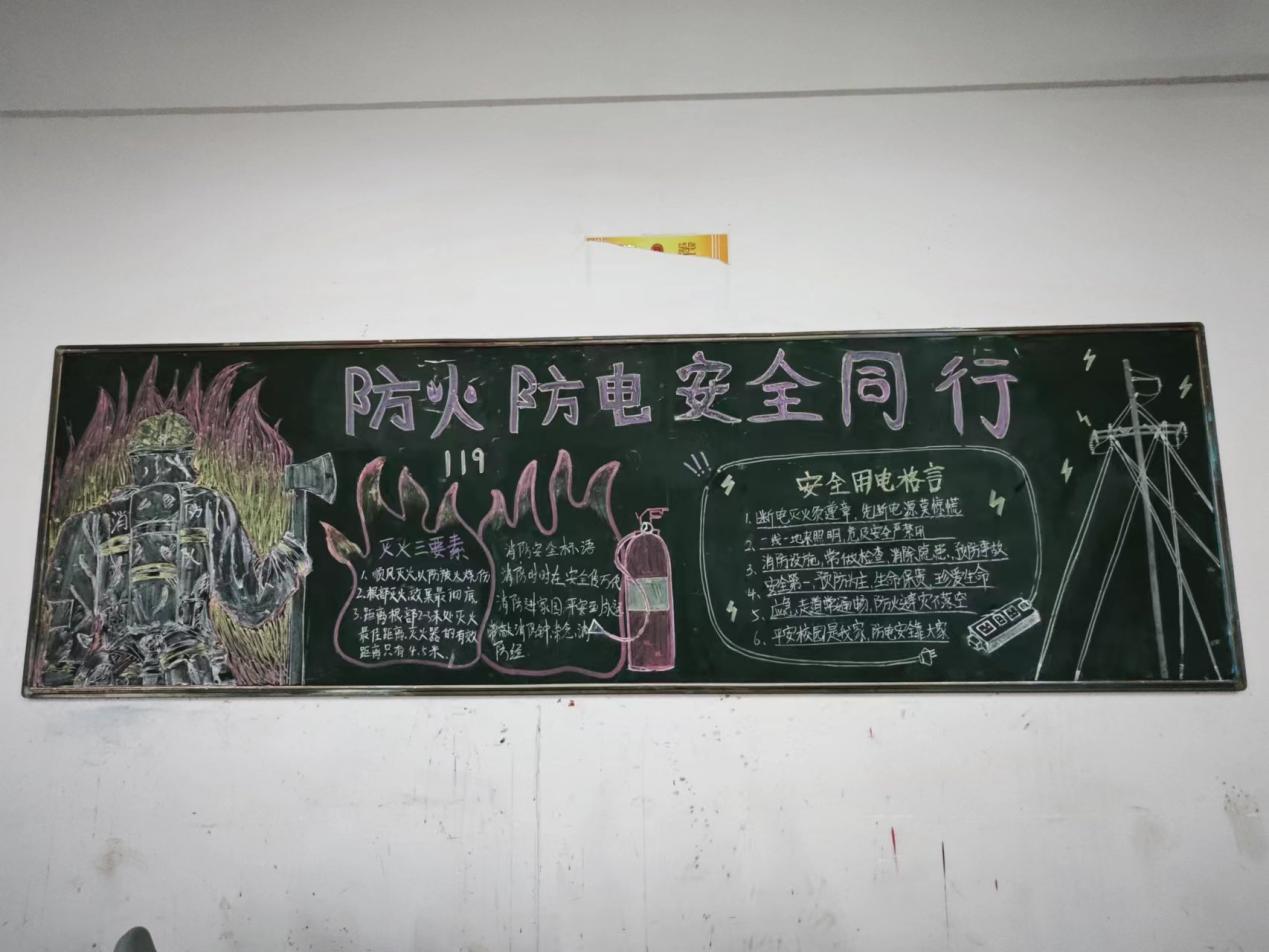 防火防电安全同行
119
消
灭火三要素
1.顺风灭火以防被火烧伤
2.根部灭火效果最彻底
3.距离根部2-3米处灭火
最佳距离,灭火器的有效
距离只有4.5米.
消防安全标语
消防时时在 安全传万代
消防进家园 平安
常敲消防钟 常念消
防经
安全用电格言
1.断电灭火须遵章,先断电源莫惊慌
2.一线一地来照明,危及安全严禁用
3.消防设施,常做检查,消除隐患,预防事故
4.安全第一,预防为主,生命保贵,珍爱生命
5.应急走道常通畅,防火避灾不落空
6.平安校园是我家,防电安全靠大家